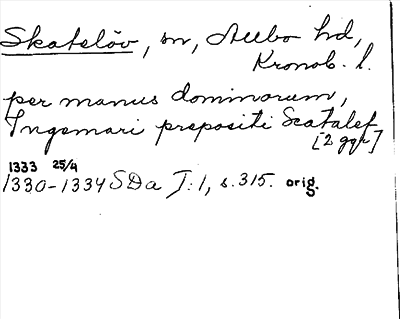 Skatelöv, sn, Allbo hd,
Kronob. l.
per manus dominorum,
Ingemari prepositi Scatalef
[2 ggr]
1333 25/4
1330-1334 SDa I:1, s. 315. orig.